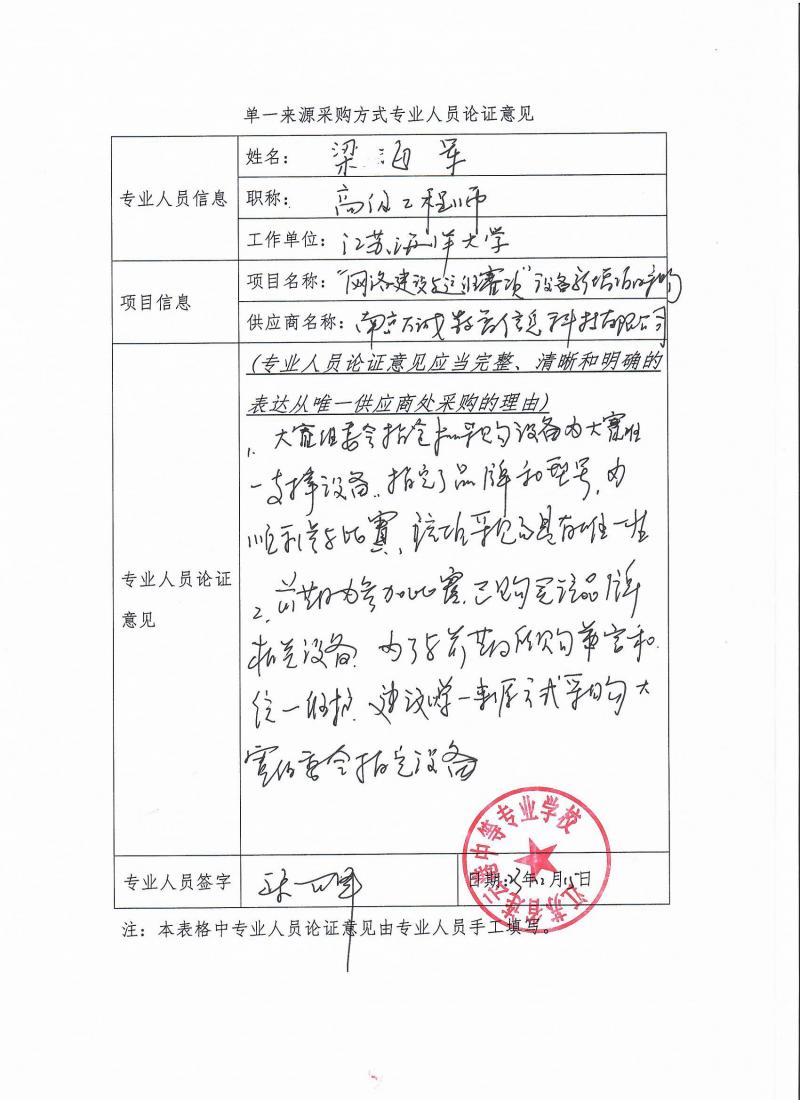 单一来源采购方式专业人员论证意见
专业人员信息
姓名： 梁海军
职称： 高级工程师
工作单位： 江苏海洋大学
项目信息
项目名称： “网络建设与运维赛项”设备新增项目采购
供应商名称： 南京 信息科技有限公司
专业人员论证
意见
(专业人员论证意见应当完整、清晰和明确的
表达从唯一供应商处采购的理由)
1、大赛组委会指定 采购设备为大赛唯
一支撑设备，指定了品牌和型号，为
顺利参与比赛，该项采购具有唯一性
2、前期为参加比赛，已购买该品牌
相关设备，为了与前期所购 和
统一维护，建议单一来源方式采购大
赛组委会指定设备
专业人员签字
日期：23年2月15日
江苏省连云港中等专业学校
注：本表格中专业人员论证意见由专业人员手工填写。